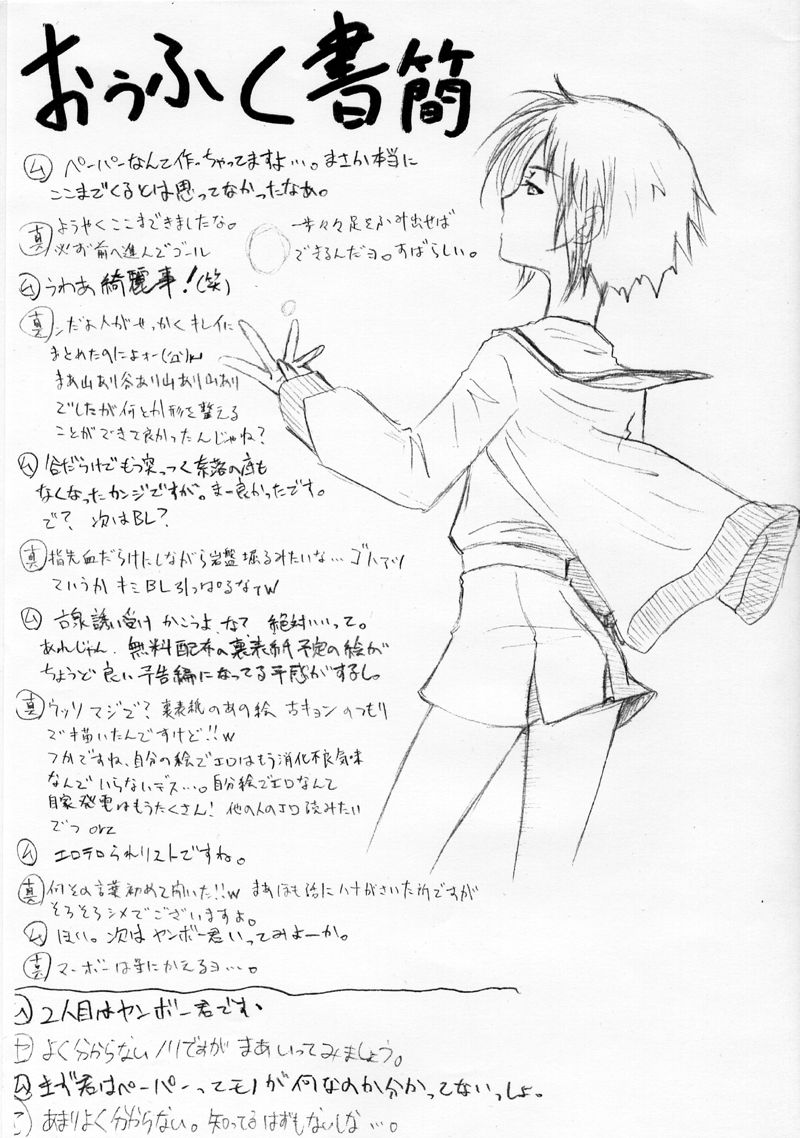 おうふく書簡
ム ペーパーなんて作っちゃってますよ…。まさか本当に
ここまでくるとは思ってなかったなあ。
真 ようやくここまできましたな。 一歩々々足をふみ出せば
必ず前へ進んでゴール できるんだヨ。すばらしい。
ム うわあ綺麗事!(笑)
真 んだよ人がせっかくキレイに
まとめたのによォー
まあ山あり谷あり山あり山あり
でしたが何とか形を整える
ことができて良かったんじゃね?
ム 谷だらけでもう突っつく奈落の底も
なくなったカンジですが。まー良かったです。
で? 次はBL?
真 指先血だらけにしながら岩盤掘るみたいな…
ていうか キミBL引っぱるなァw
ム 古泉誘い受けかこうよ、なて 絶対いいって。
あれじゃん、無料配布の裏表紙予定の絵が
ちょうど良い予告編になってる予感がするし。
真 ウッソマジで? 裏表紙のあの絵 古キョンのつもり
で描いたんですけど!!w
つかですね、自分の絵でエロはもう消化不良気味
なんでいらないデス…。自分絵でエロなんて
自家発電はもうたくさん! 他の人のエロ読みたい
でつ orz
ム エロテロられリストですね。
真 何その言葉初めて聞いた!!w まあほも話にハナがさいた所ですが
そろそろシメでございますよ。
ム ほい。次はヤンボー君いってみよーか。
真 マーボーは星にかえるヨ…。
ム 2人目はヤンボー君です、
よく分からないノリですが まあいってみましょう。
ム まず君はペーパーってモノが何なのか分かってないっしょ。
あまりよく分からない。知ってるはずもないしな…。